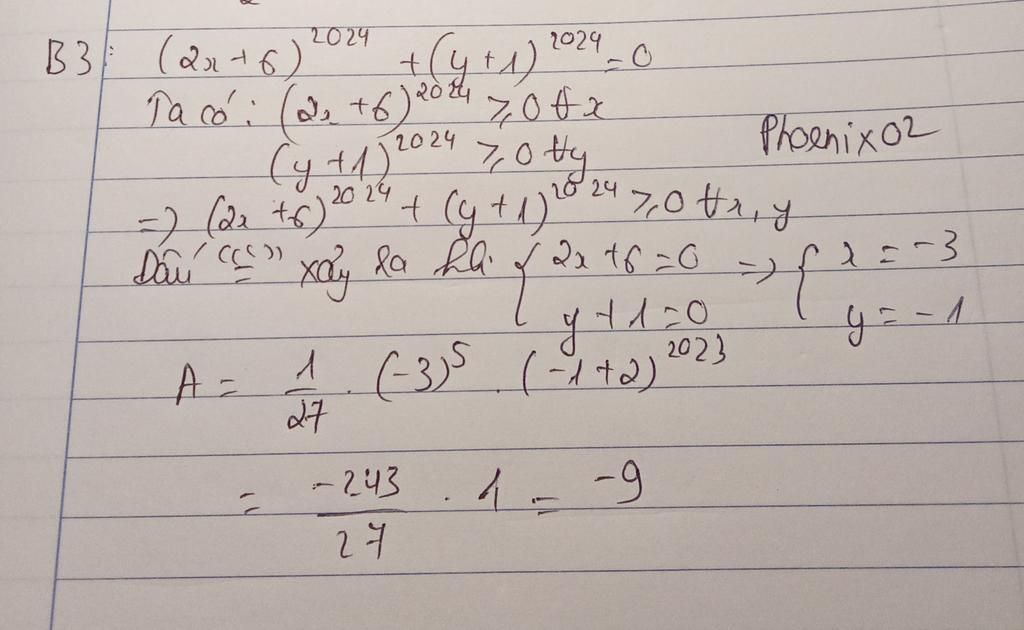 B3: (2x+6)^2024 + (y+1)^2024 = 0
Ta có: (2x+6)^2024 ≥ 0 ∀x
(y+1)^2024 ≥ 0 ∀y
Phoenix02
=> (2x+6)^2024 + (y+1)^2024 ≥ 0 ∀x, y
Dấu "=" xảy ra khi { 2x+6=0 => { x = -3
y+1=0 y = -1
A = 1/27 . (-3)^5 . (-1+2)^2023
= -243/27 . 1 = -9